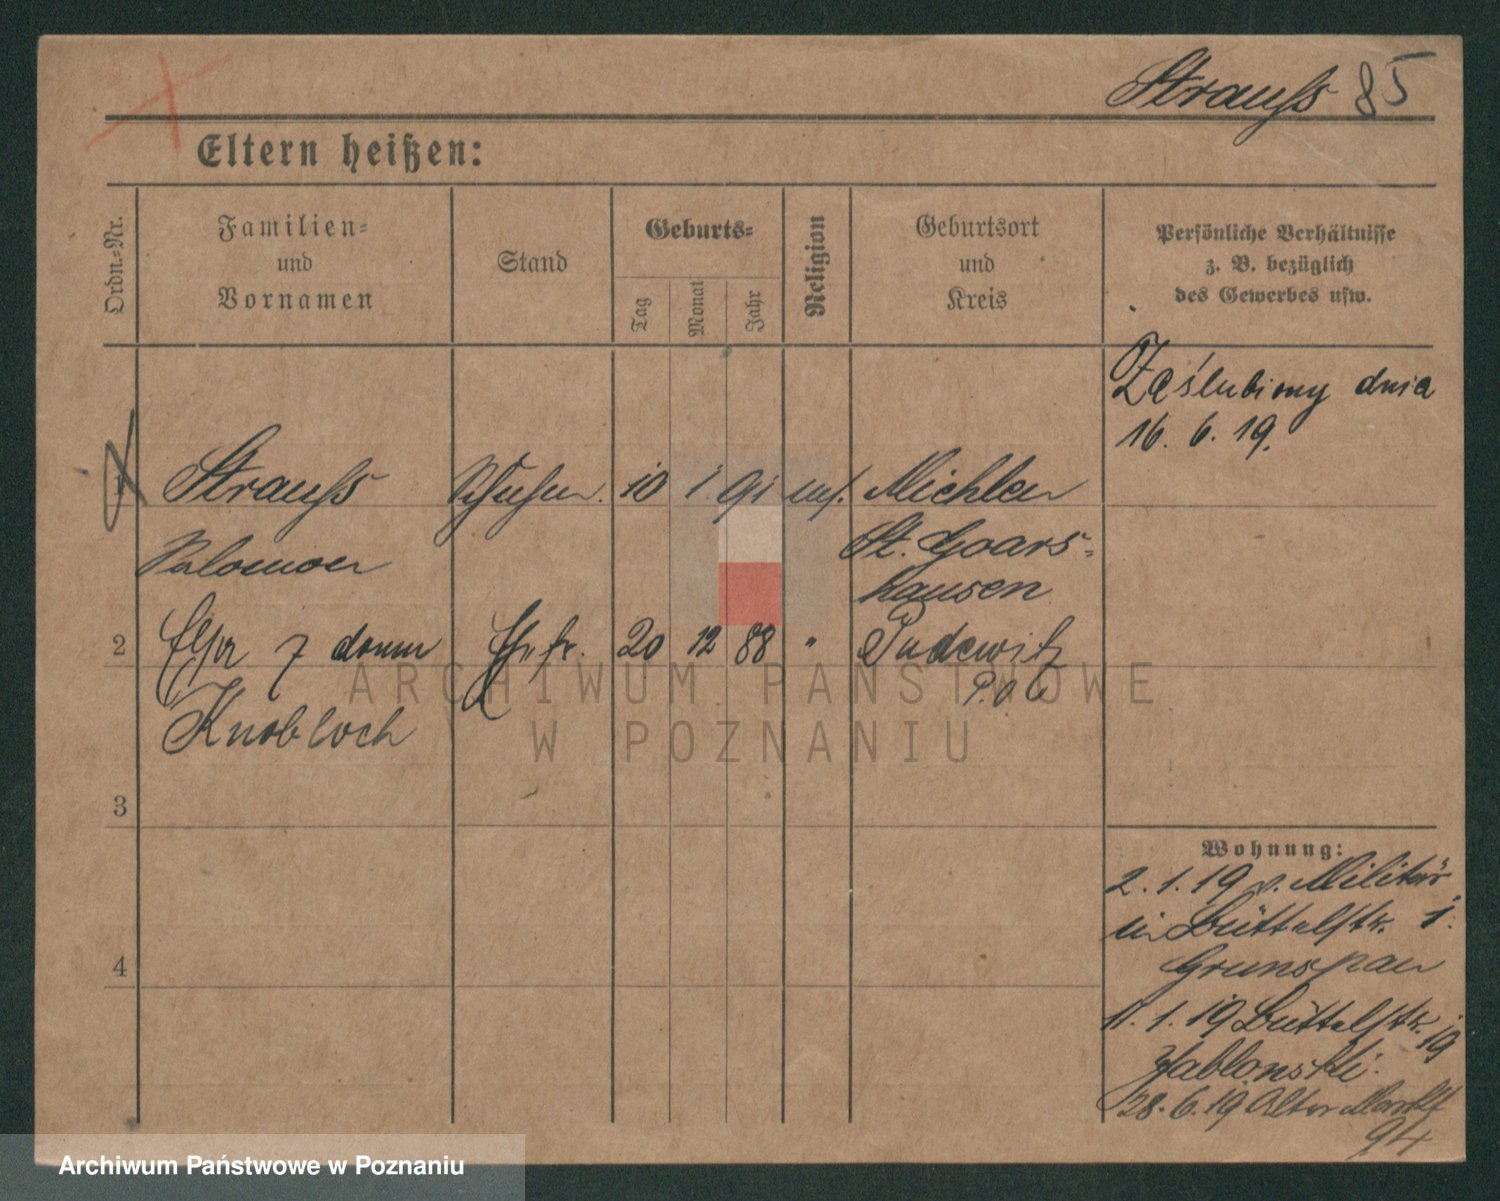 Strauß 85
Eltern heißen:
Ordn.-Nr.
Familien-
und
Vornamen
Stand
Geburts-
Tag
Monat
Jahr
Religion
Geburtsort
und
Kreis
Persönliche Verhältnisse
z. B. bezüglich
des Gewerbes usw.
Zaślubiony dnia
16. 6. 19.
1 Strauß 10 1 91 Michlen
Salomon St. Goars-
hausen
2 20 12 88 " Pudewitz
Knobloch
3
4
Wohnung:
2. 1. 19 v. Militär
in Büttelstr. 1.
Grunspan
11. 1. 19 Büttelstr. 19
Jablonski.
28. 6. 19 Alter Markt
94
ARCHIWUM PAŃSTWOWE
W POZNANIU
Archiwum Państwowe w Poznaniu